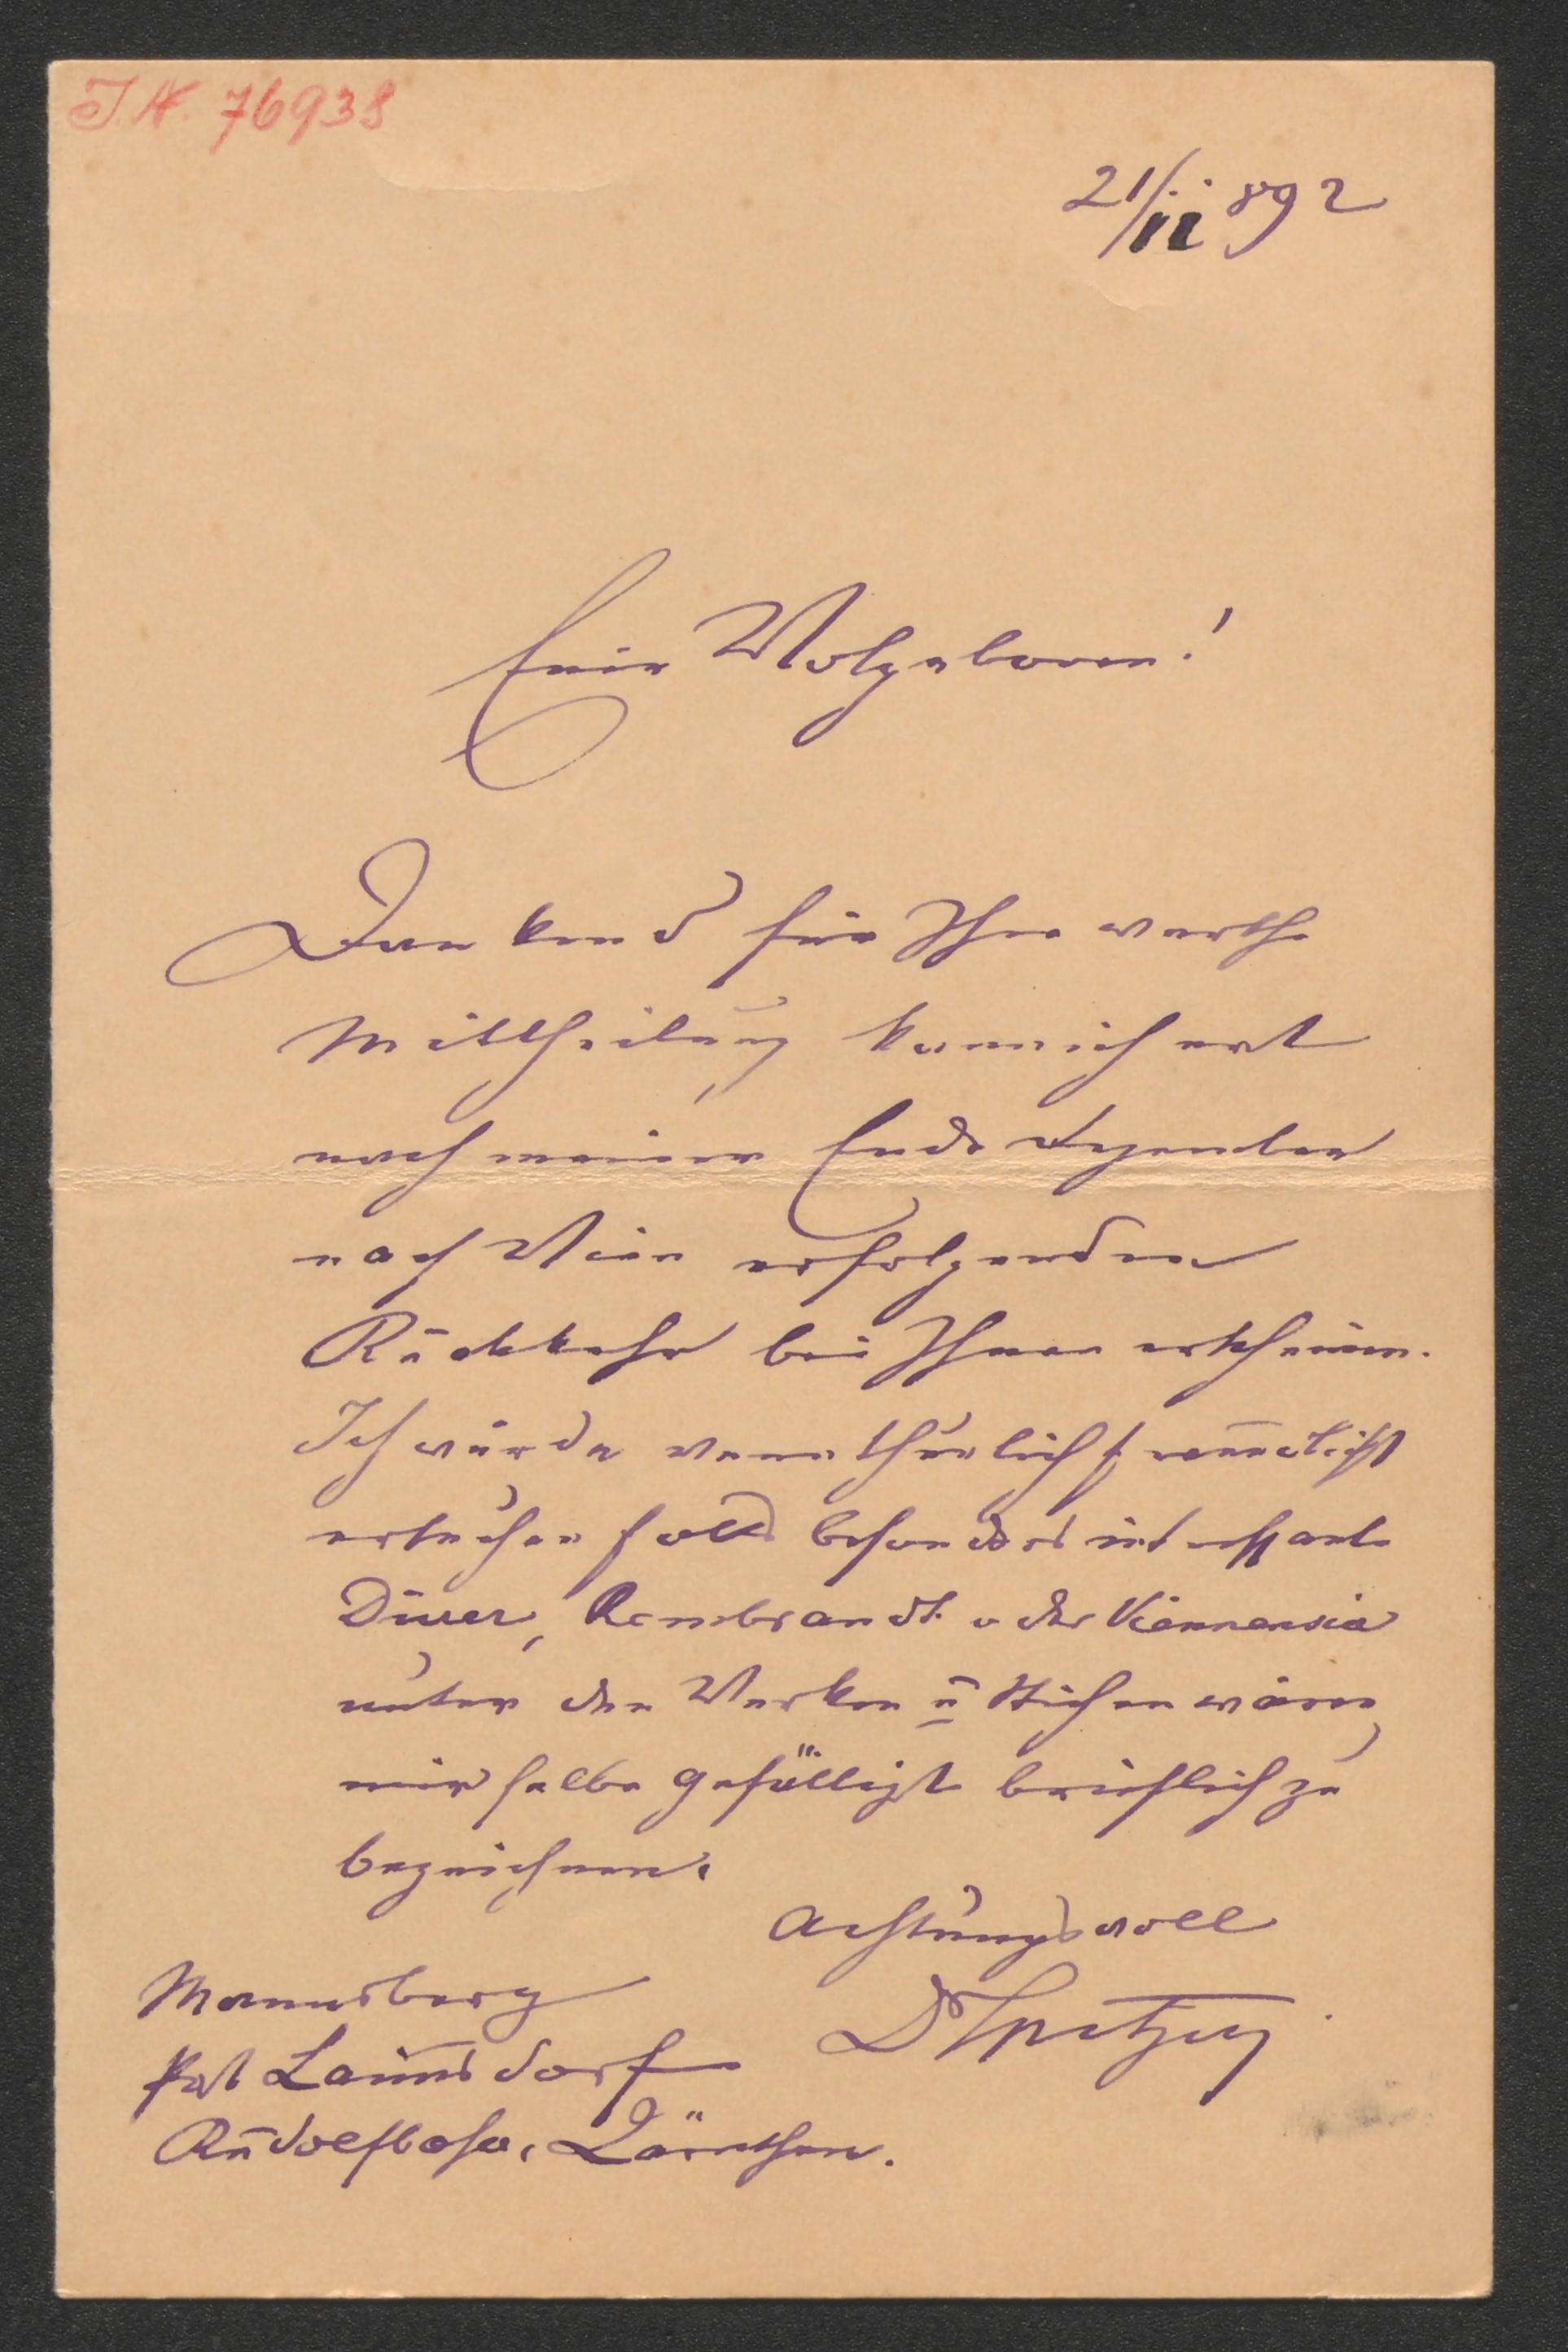 I.N. 76938
21/11 892
Euer Wolgeboren!
Dankend für Ihre werthe
Mittheilung kann ich erst
nach meiner Ende Dezember
nach Wien erfolgenden
Rückkehr bei Ihnen erscheinen.
Ich würde wenn thunlich freundlichst
ersuchen falls besonders interessante
Dürer, Rembrandt oder Viennensia
unter den Werken u Stichen wären,
mir selbe gefälligst brieflich zu
bezeichnen.
Achtungsvoll
Mannsberg
DSpitzer
Post Launsdorf
Rudolfbahn, Kärnthen.